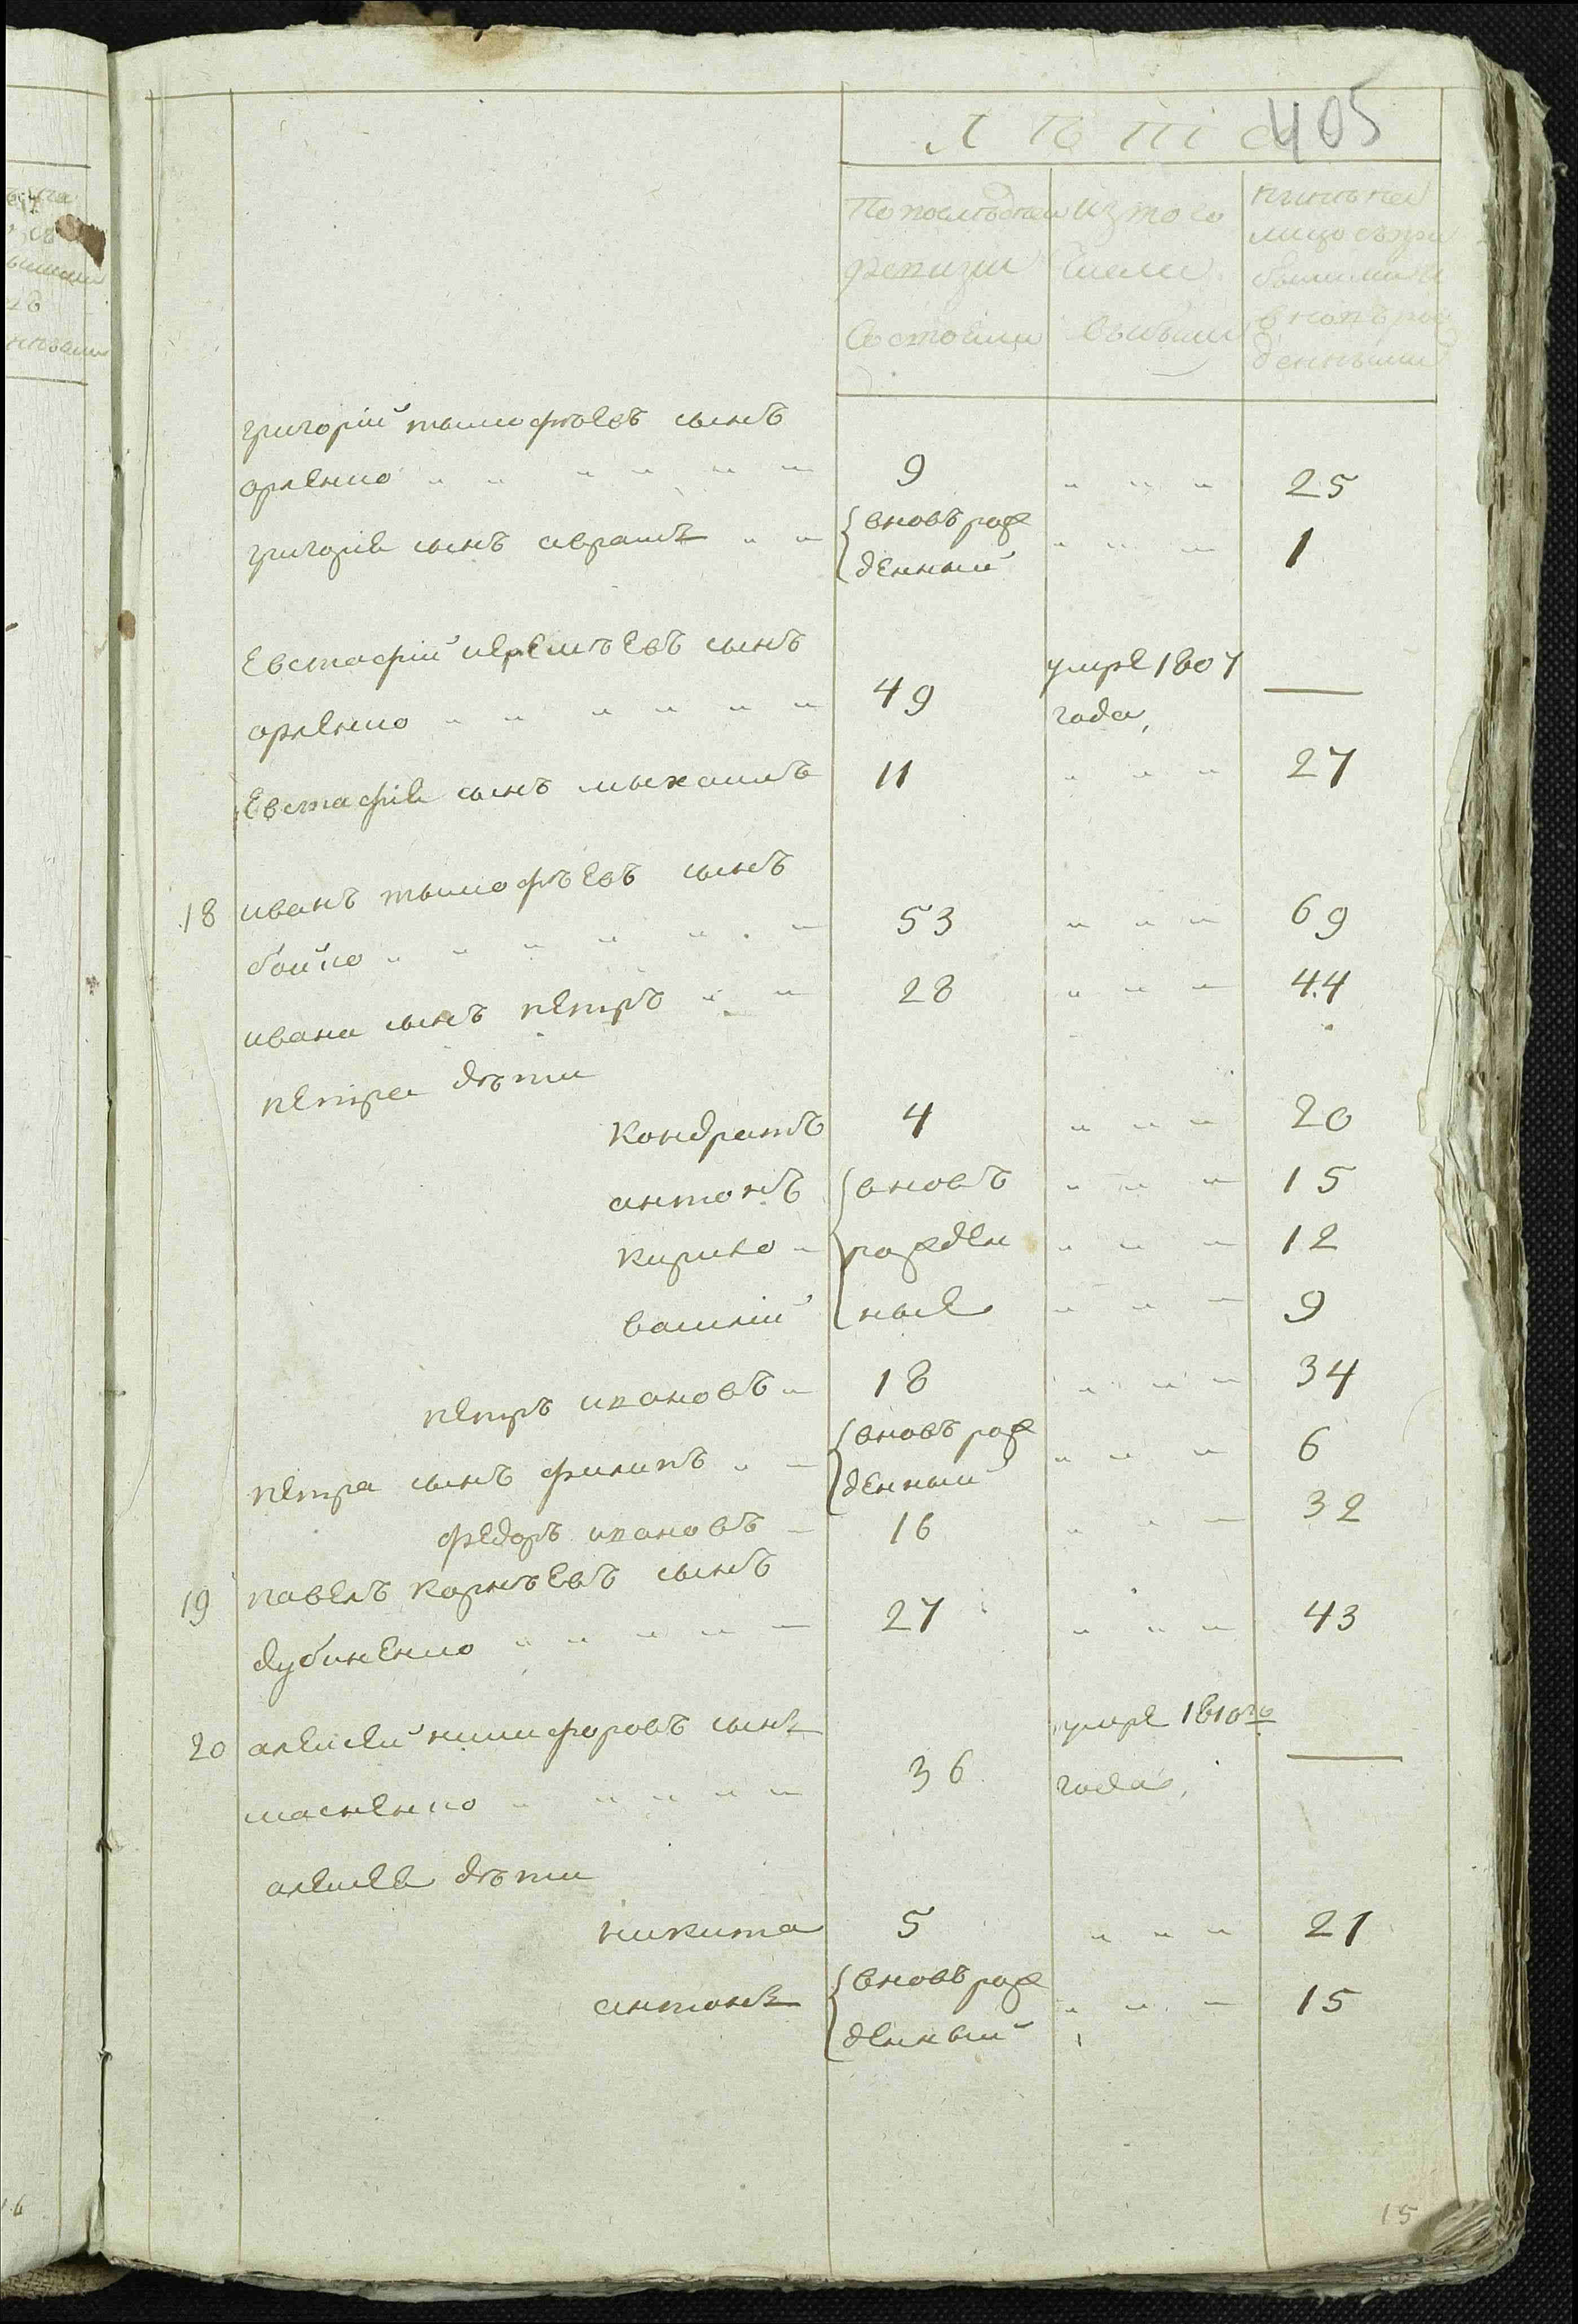 405
Лѣта
По послѣдней ревизии состояли
Из того числа выбыли
Нинѣ на лицо съ при былими и вновь рож денными
григорій тымофѣевъ сынъ
орленко 9 25
григорів сынъ аврамъ вновъ рож денный 1
Евстафій иеремѣевъ сынъ
орленко 49 умре 1807 года,
Евстафів сынъ мыхаилъ 11 27
18 иванъ тымофѣевъ сынъ
бойко 53 69
ивана сынъ пётръ 28 44
пётра дѣти
кондратъ 4 20
антонъ вновъ 15
кирило рожден 12
василій ные 9
пётръ ивановъ 18 34
пётра сынъ филипъ вновъ рож денный 6
федоръ ивановъ 16 32
19 павелъ корнѣевъ сынъ
дубиненко 27 43
20 алексей никифоровъ сынъ
масненко 36 умре 1810го года,
алексев дѣти
никита 5 21
антонъ вновъ рож денный 15
15